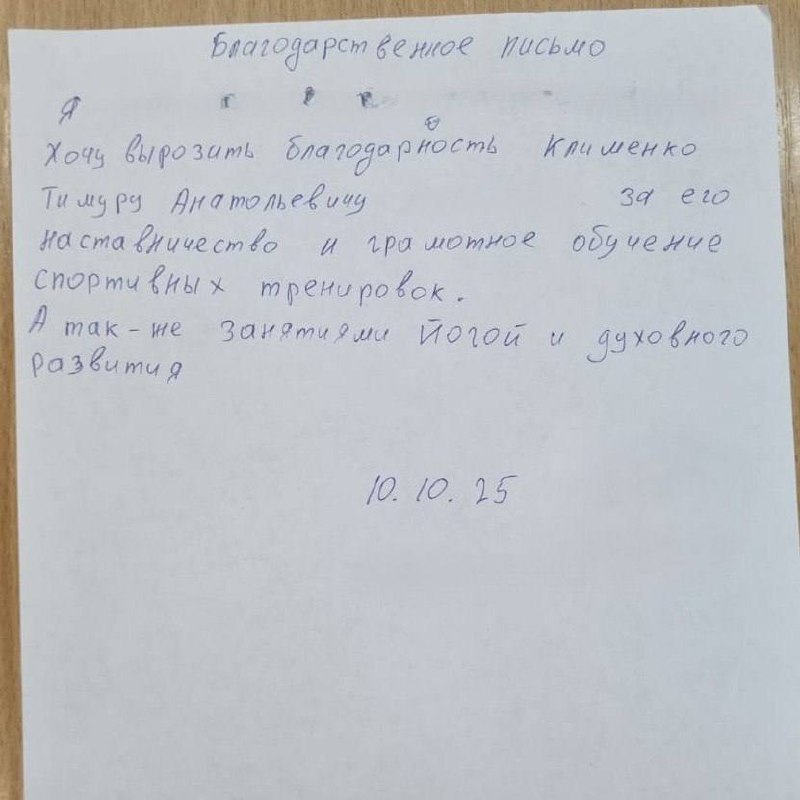 Благодарственное письмо
Я
Хочу вырозить благодарность Клименко
Тимуру Анатольевичу за его
наставничество и грамотное обучение
спортивных тренировок.
А так-же занятиями йогой и духовного
развития
10.10.25